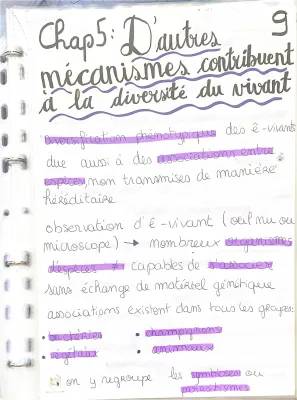 9
Chap5: D'autres
mécanismes contribuent
à la diversité du vivant
diversification phénotypique des ê-vivants
due aussi à des associations entre
espèces, non transmises de manière
héréditaire
observation d'ê-vivant (oeil nu ou
microscope) → nombreux organismes
d'espèces ≠ capables de s'associer
sans échange de matériel génétique
associations existent dans tous les groupes:
• bactéries • champignons
• végétaux • animaux
on y regroupe les symbioses ou
parasitismes